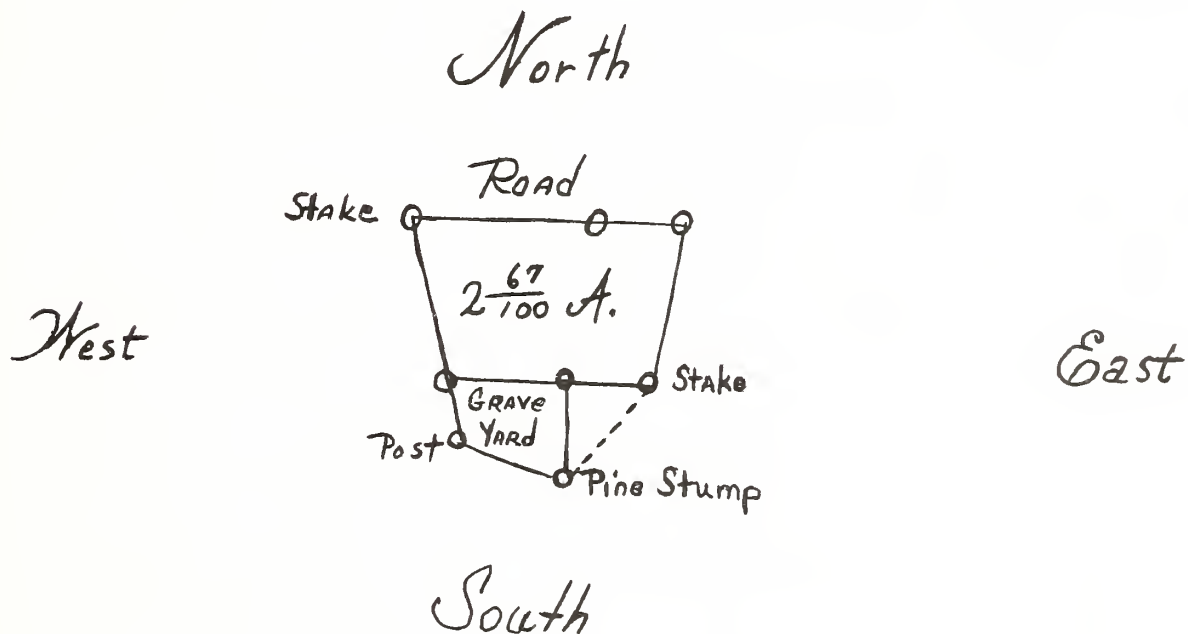 North
Road
Stake
2 67/100 A.
West
East
Stake
Grave
Yard
Post
Pine Stump
South